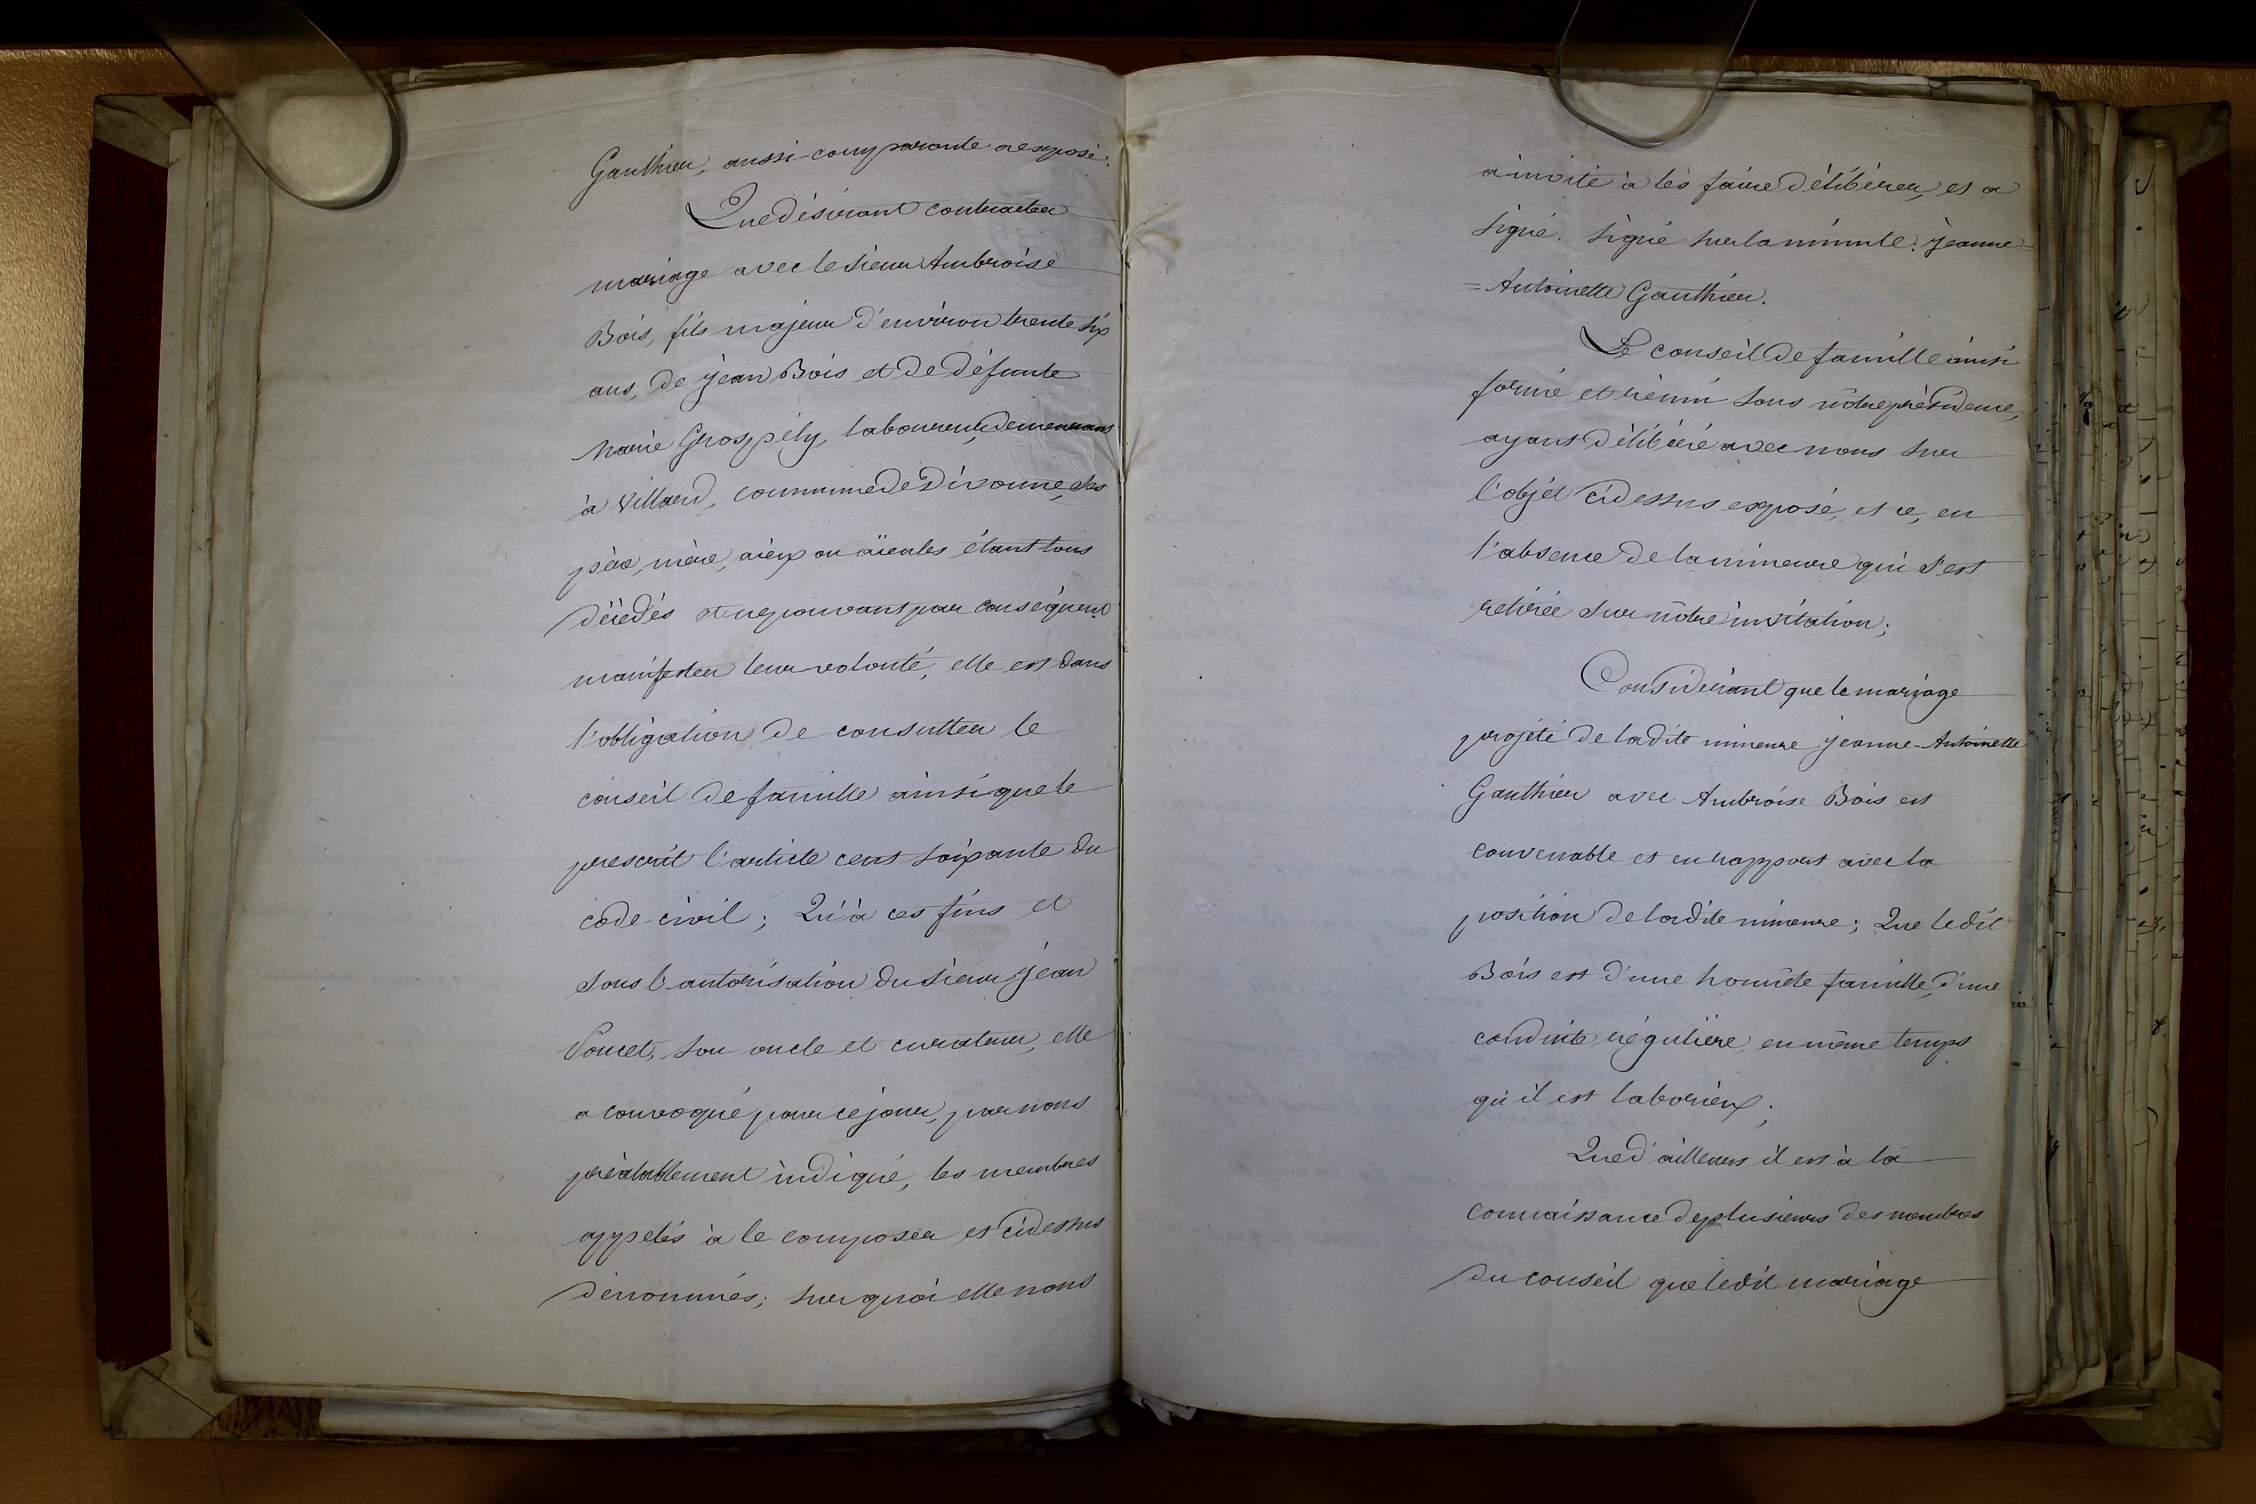 Gauthier, aussi comparante a exposé:
Que désirant contracter
mariage avec le sieur Ambroise
Bois, fils majeur d'environ trente six
ans, de jean Bois et de défunte
marie Grospély, laboureur, demeurant
à Villard, commune de Divonne, ses
père, mère, aieux ou aïeules étant tous
décédés et ne pouvant par conséquent
manifester leur volonté, elle est dans
l'obligation de consulter le
conseil de famille ainsi que le
prescrit l'article cent soixante du
code civil; Qu'à ces fins et
sous l'autorisation du sieur jean
Poncet, son oncle et curateur, elle
a convoqué pour ce jour, par nous
préalablement indiqué, les membres
appelés à le composer et cidessus
dénommés; sur quoi elle nous
a invité à les faire délibérer, et a
signé. signé sur la minute: jeanne
= Antoinette Gauthier.
Le conseil de famille ainsi
formé et réuni sous nôtre présidence,
ayant délibéré avec nous sur
l'objet cidessus exposé, et ce, en
l'absence de la mineure qui s'est
retirée sur nôtre invitation;
Considérant que le mariage
projeté de ladite mineure jeanne-Antoinette
Gauthier avec Ambroise Bois est
convenable et en rapport avec la
position de ladite mineure; Que ledit
Bois est d'une honnête famille, d'une
conduite régulière, en même temps
qu'il est laborieux;
Que d'ailleurs il est à la
connaissance de plusieurs des membres
du conseil que ledit mariage